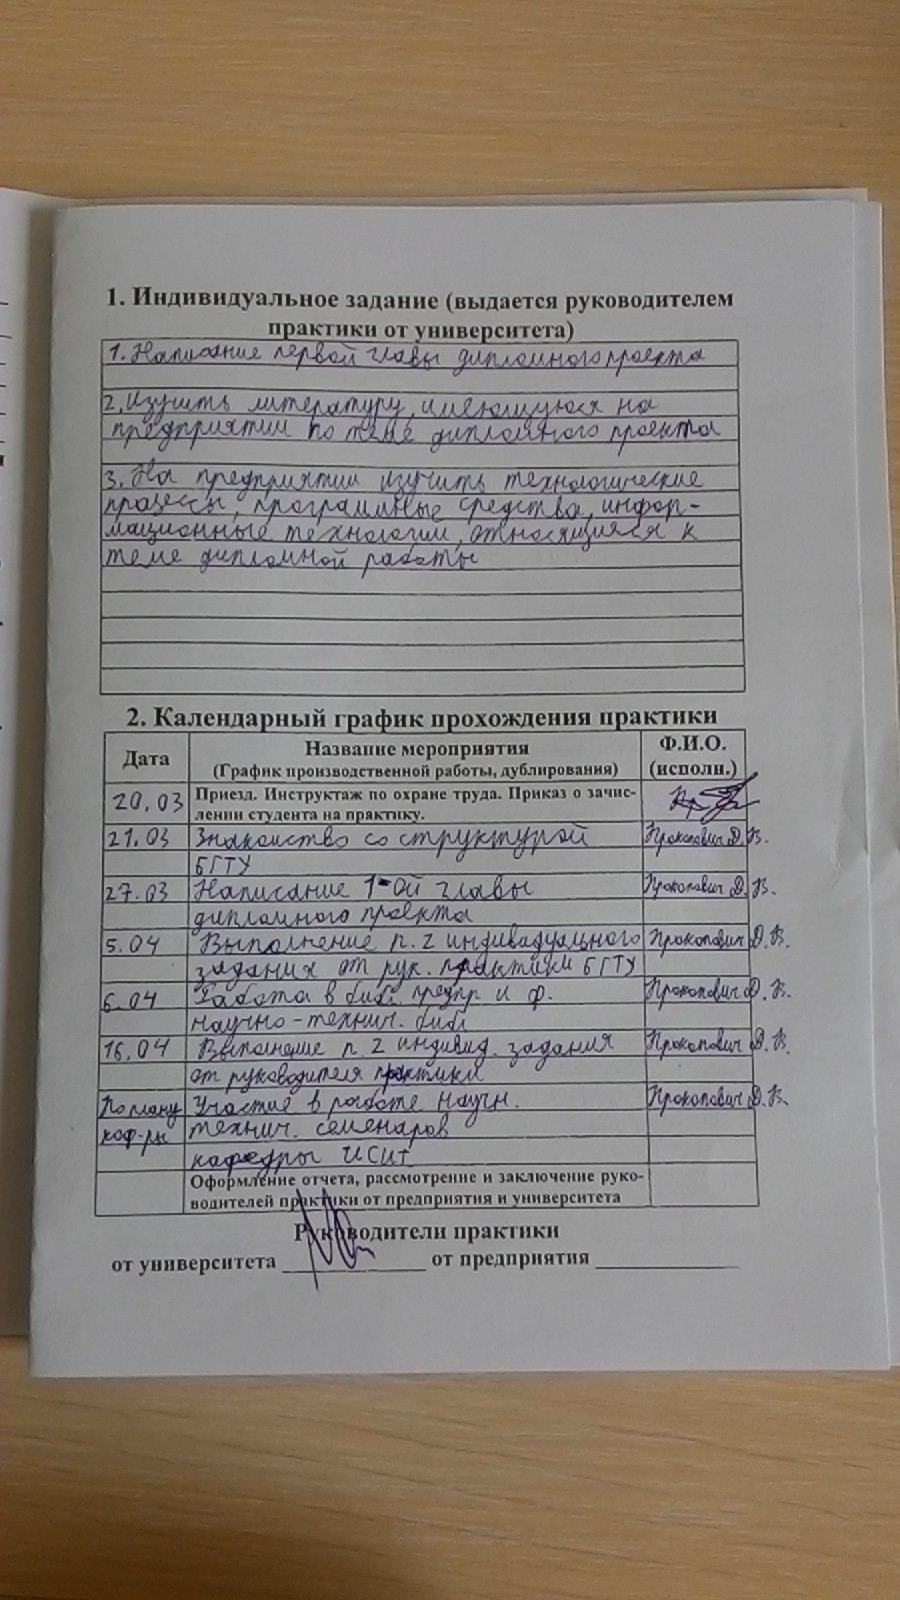 1. Индивидуальное задание (выдается руководителем
практики от университета)
1. Написание первой главы дипломного проекта
2. Изучить литературу, имеющуюся на
предприятии по теме дипломного проекта
3. На предприятии изучить технологические
процессы, программные средства, инфор-
мационные технологии, относящиеся к
теме дипломной работы
2. Календарный график прохождения практики
Дата Название мероприятия Ф.И.О.
(График производственной работы, дублирования) (исполн.)
20.03 Приезд. Инструктаж по охране труда. Приказ о зачис-
лении студента на практику.
21.03 Знакомство со структурой Прокопович Д.В.
БГТУ
27.03 Написание 1-ой главы Прокопович Д.В.
дипломного проекта
5.04 Выполнение п.2 индивидуального Прокопович Д.В.
задания от рук. практики БГТУ
6.04 Работа в библ. предпр. и ф. Прокопович Д.В.
научно-технич. библ
16.04 Выполнение п.2 индивид. задания Прокопович Д.В.
от руководителя практики
По плану Участие в работе научн. Прокопович Д.В.
каф-ры технич. семенаров
кафедры ИСИТ
Оформление отчета, рассмотрение и заключение руко-
водителей практики от предприятия и университета
Руководители практики
от университета от предприятия